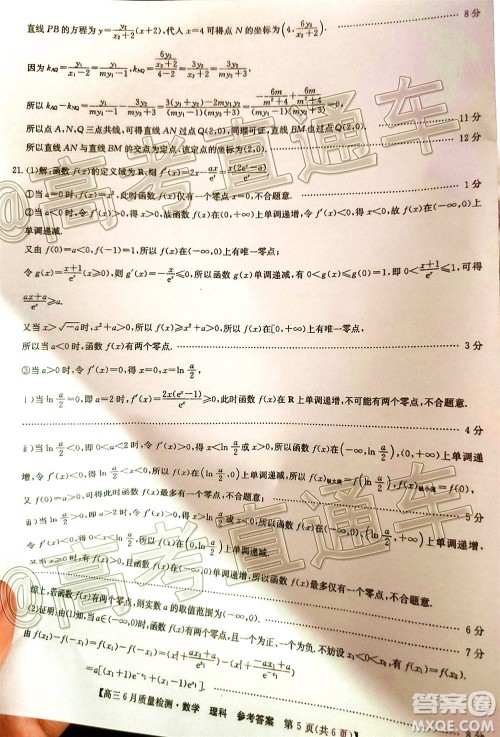 8分
直线PB的方程为y=\frac{y_2}{x_2+2}(x+2),代入x=4可得点N的坐标为(4,\frac{6y_2}{x_2+2}).
因为k_{AQ}=\frac{y_1}{x_1-2}=\frac{y_1}{my_1-1},k_{NQ}=\frac{\frac{6y_2}{x_2+2}}{4-2}=\frac{3y_2}{x_2+2}=\frac{3y_2}{my_2+3},
所以k_{AQ}-k_{NQ}=\frac{y_1}{my_1-1}-\frac{3y_2}{my_2+3}=\frac{3(y_1+y_2)-2my_1y_2}{(my_1-1)(my_2+3)}=0,
11分
所以点A、N、Q三点共线,可得直线AN过点Q(2,0),同理可证,直线BM也过点Q(2,0).
所以直线AN与直线BM的交点为定点,该定点的坐标为(2,0). 12分
21.(1)解:函数f(x)的定义域为R,则f'(x)=2x-\frac{ax}{e^x}=\frac{x(2e^x-a)}{e^x}.
①当a=0时,f(x)=x^2,此时函数f(x)仅有一个零点,不合题意. 1分
②当a<0时,令f'(x)>0,得x>0,故函数f(x)在(0,+∞)上单调递增,令f'(x)<0,得x<0,故函数f(x)在(-∞,0)上
单调减.
又由f(0)=a<0,f(-1)=1>0,所以f(x)在(-∞,0)上有唯一零点.
令g(x)=\frac{x+1}{e^x}(x≥0),则g'(x)=-\frac{x}{e^x}≤0,所以函数g(x)单调递减,有0<g(x)≤g(0)=1,即0<\frac{x+1}{e^x}≤1,可得
\frac{ax+a}{e^x}≥a.
又当x>\sqrt{-a}时,x^2+a>0,所以f(x)≥x^2+a>0,所以f(x)在(0,+∞)上有唯一零点,
所以当a<0时,函数f(x)有两个零点. 3分
③当a>0时,令f'(x)=0,得x=0,x=ln\frac{a}{2}.
ⅰ)当ln\frac{a}{2}=0时,即a=2时,f'(x)=\frac{2x(e^x-1)}{e^x}≥0,此时函数f(x)在R上单调递增,不可能有两个零点,不合题意.
4分
ⅱ)当ln\frac{a}{2}<0时,即0<a<2时,令f'(x)>0,得x<ln\frac{a}{2}或x>0,所以f(x)在(-∞,ln\frac{a}{2}),(0,+∞)上单调递
增,令f'(x)<0,得ln\frac{a}{2}<x<0,所以f(x)在(ln\frac{a}{2},0)上单调递减,所以f(x)_{极大值}=f(ln\frac{a}{2}),f(x)_{极小值}=f(0),
又f(0)=a>0,所以函数f(x)最多仅有一个零点,不合题意. 5分
ⅲ)当ln\frac{a}{2}>0时,即a>2时,令f'(x)>0,得x>ln\frac{a}{2}或x<0,所以f(x)在(-∞,0),(ln\frac{a}{2},+∞)上单调递增,
令f'(x)<0,得0<x<ln\frac{a}{2},所以f(x)在(0,ln\frac{a}{2})上单调递减,所以函数f(x)最多仅有一个零点,不合题意.
6分
综上,若函数f(x)有两个零点,则实数a的取值范围为(-∞,0).
(2)证明:由(1)知,当a∈(-∞,0)时,函数f(x)有两个零点,且
由f(x_1)-f(-x_1)=f(x_2)-f(-x_1)=(x_1^2+\frac{ax_1+a}{e^{x_1}})
=a[(x_1+1)e^{-x_1}+(x_1-1)e^{x_1}].
【高三6月质量检测·数学 理科 参考答案 第5页(共6页)】
@高考直通车
@高考直通车
答案圈
MXQE.COM